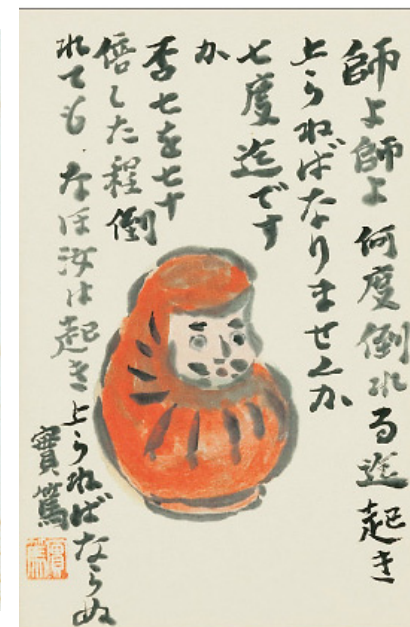 師よ師よ 何度倒れる迄起き
上らねばなりませんか
七度迄です
か
否七を七十
倍した程倒
れても なほ汝は起き上らねばならぬ
實篤
實篤